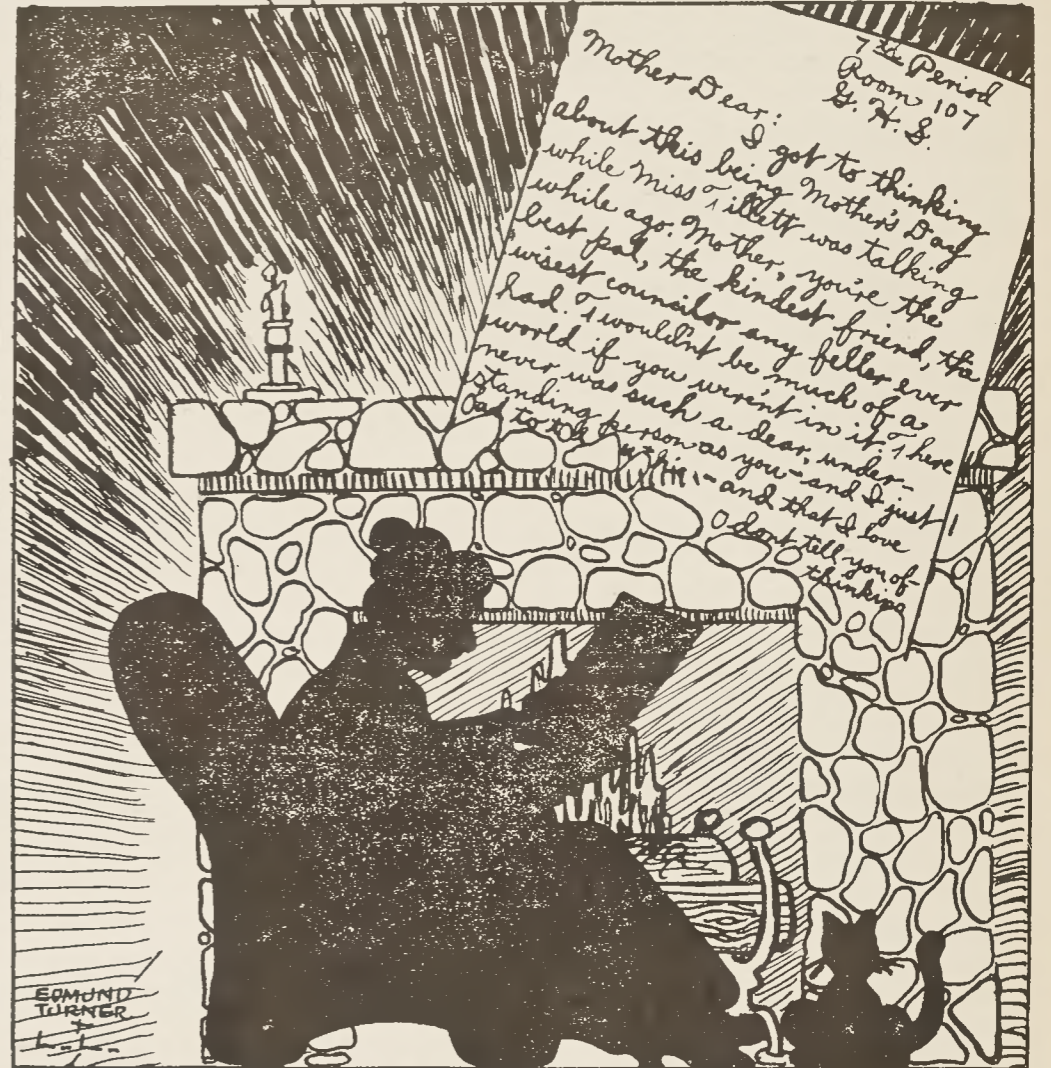 7th Period
Room 107
G. H. S.
Mother Dear:
I got to thinking
about this being Mother's Day
while Miss Tillett was talking
while ago. Mother, you're the
best pal, the kindest friend, the
wisest councilor any feller ever
had. Twouldn't be much of a
world if you weren't in it. There
never was such a dear, under-
standing person as you - and I just
to - and that I love
don't tell you of-
thinking
EDMUND
TURNER